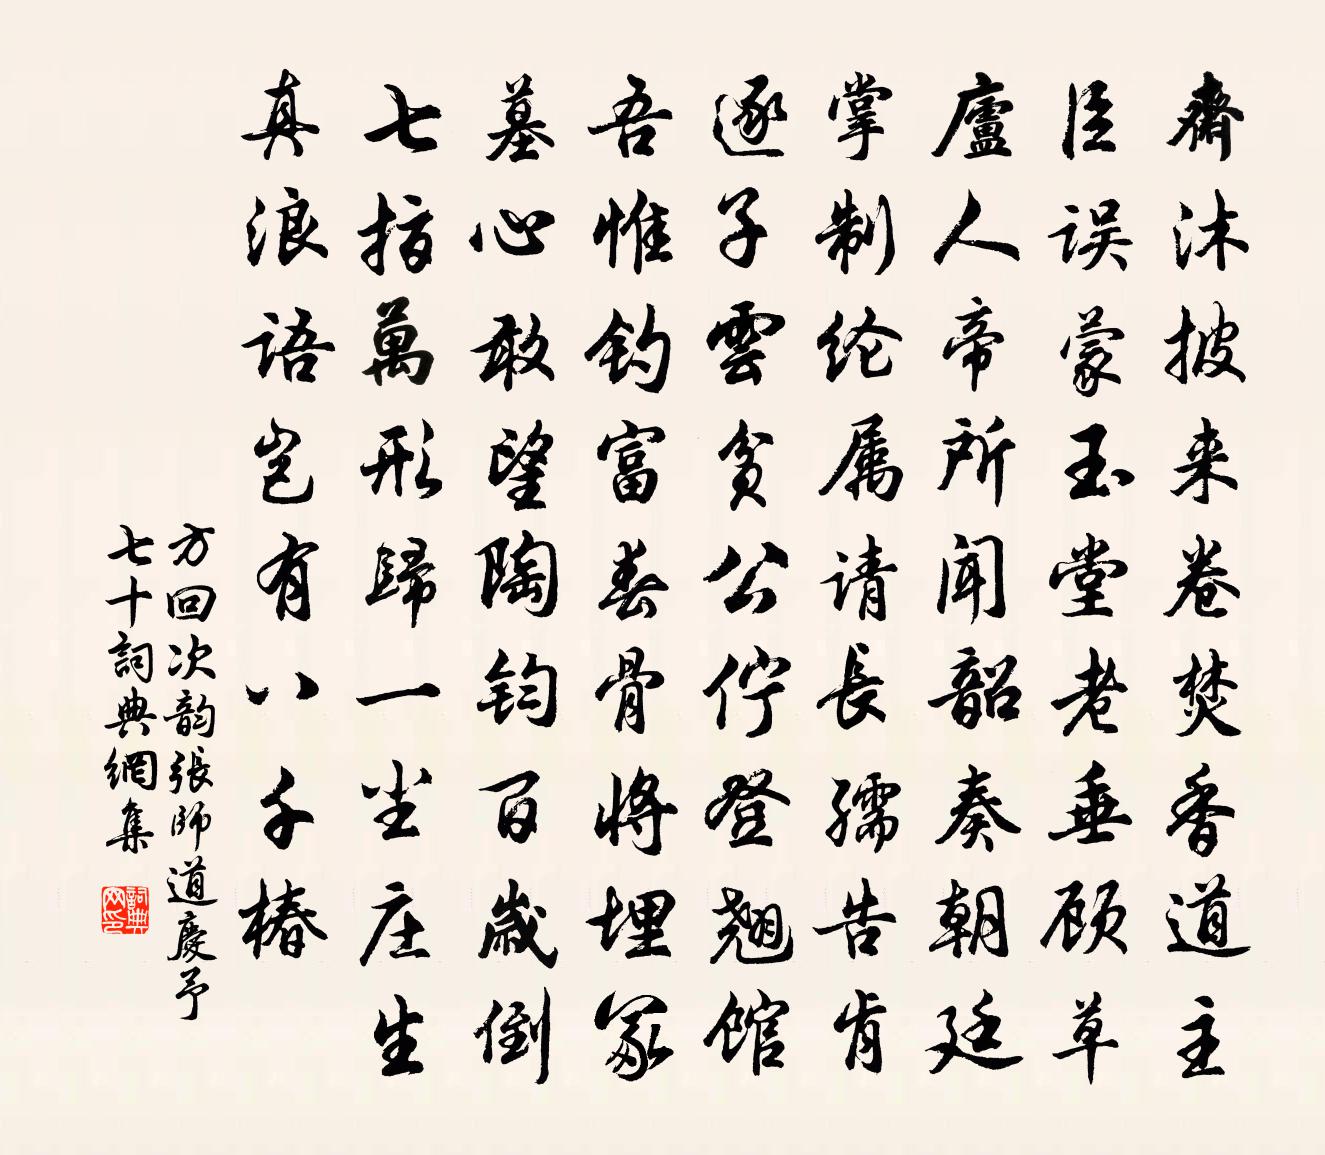 齋沐披来卷焚香道主
臣误蒙玉堂老垂顾草
廬人帝所闻韶奏朝廷
掌制纶属请長孺告肯
逐子雲貧公佇登翘馆
吾惟钓富春骨将埋冢
墓心敢望陶钧百歲倒
七指萬形歸一坐庄生
真浪語岂有八千椿
方回次韵張師道慶予
七十詞典網集
詞典网印